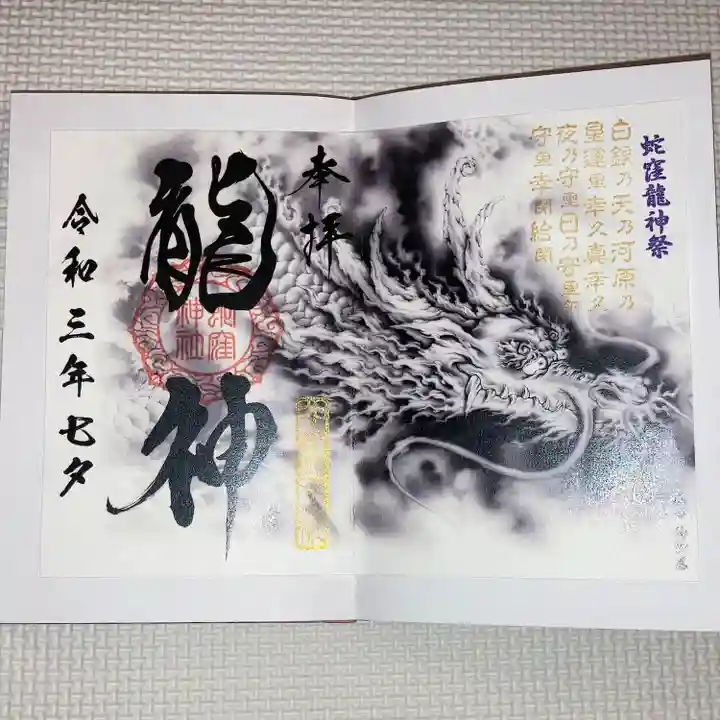 蛇窪龍神祭
白銀乃天乃河原乃
星運里幸久真幸夕
夜乃守里日乃守里
守里幸閇給閇
奉拝
龍神
蛇窪神社
令和三年七夕